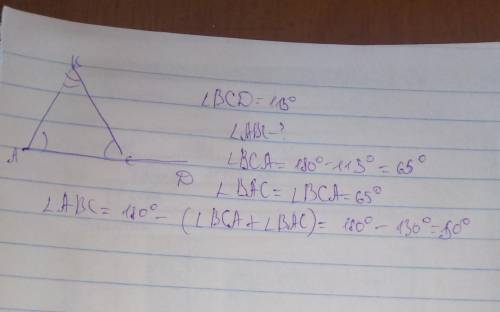 B
A
C
D
∠BCD = 115°
∠ABC - ?
∠BCA = 180° - 115° = 65°
∠BAC = ∠BCA = 65°
∠ABC = 180° - (∠BCA + ∠BAC) = 180° - 130° = 50°